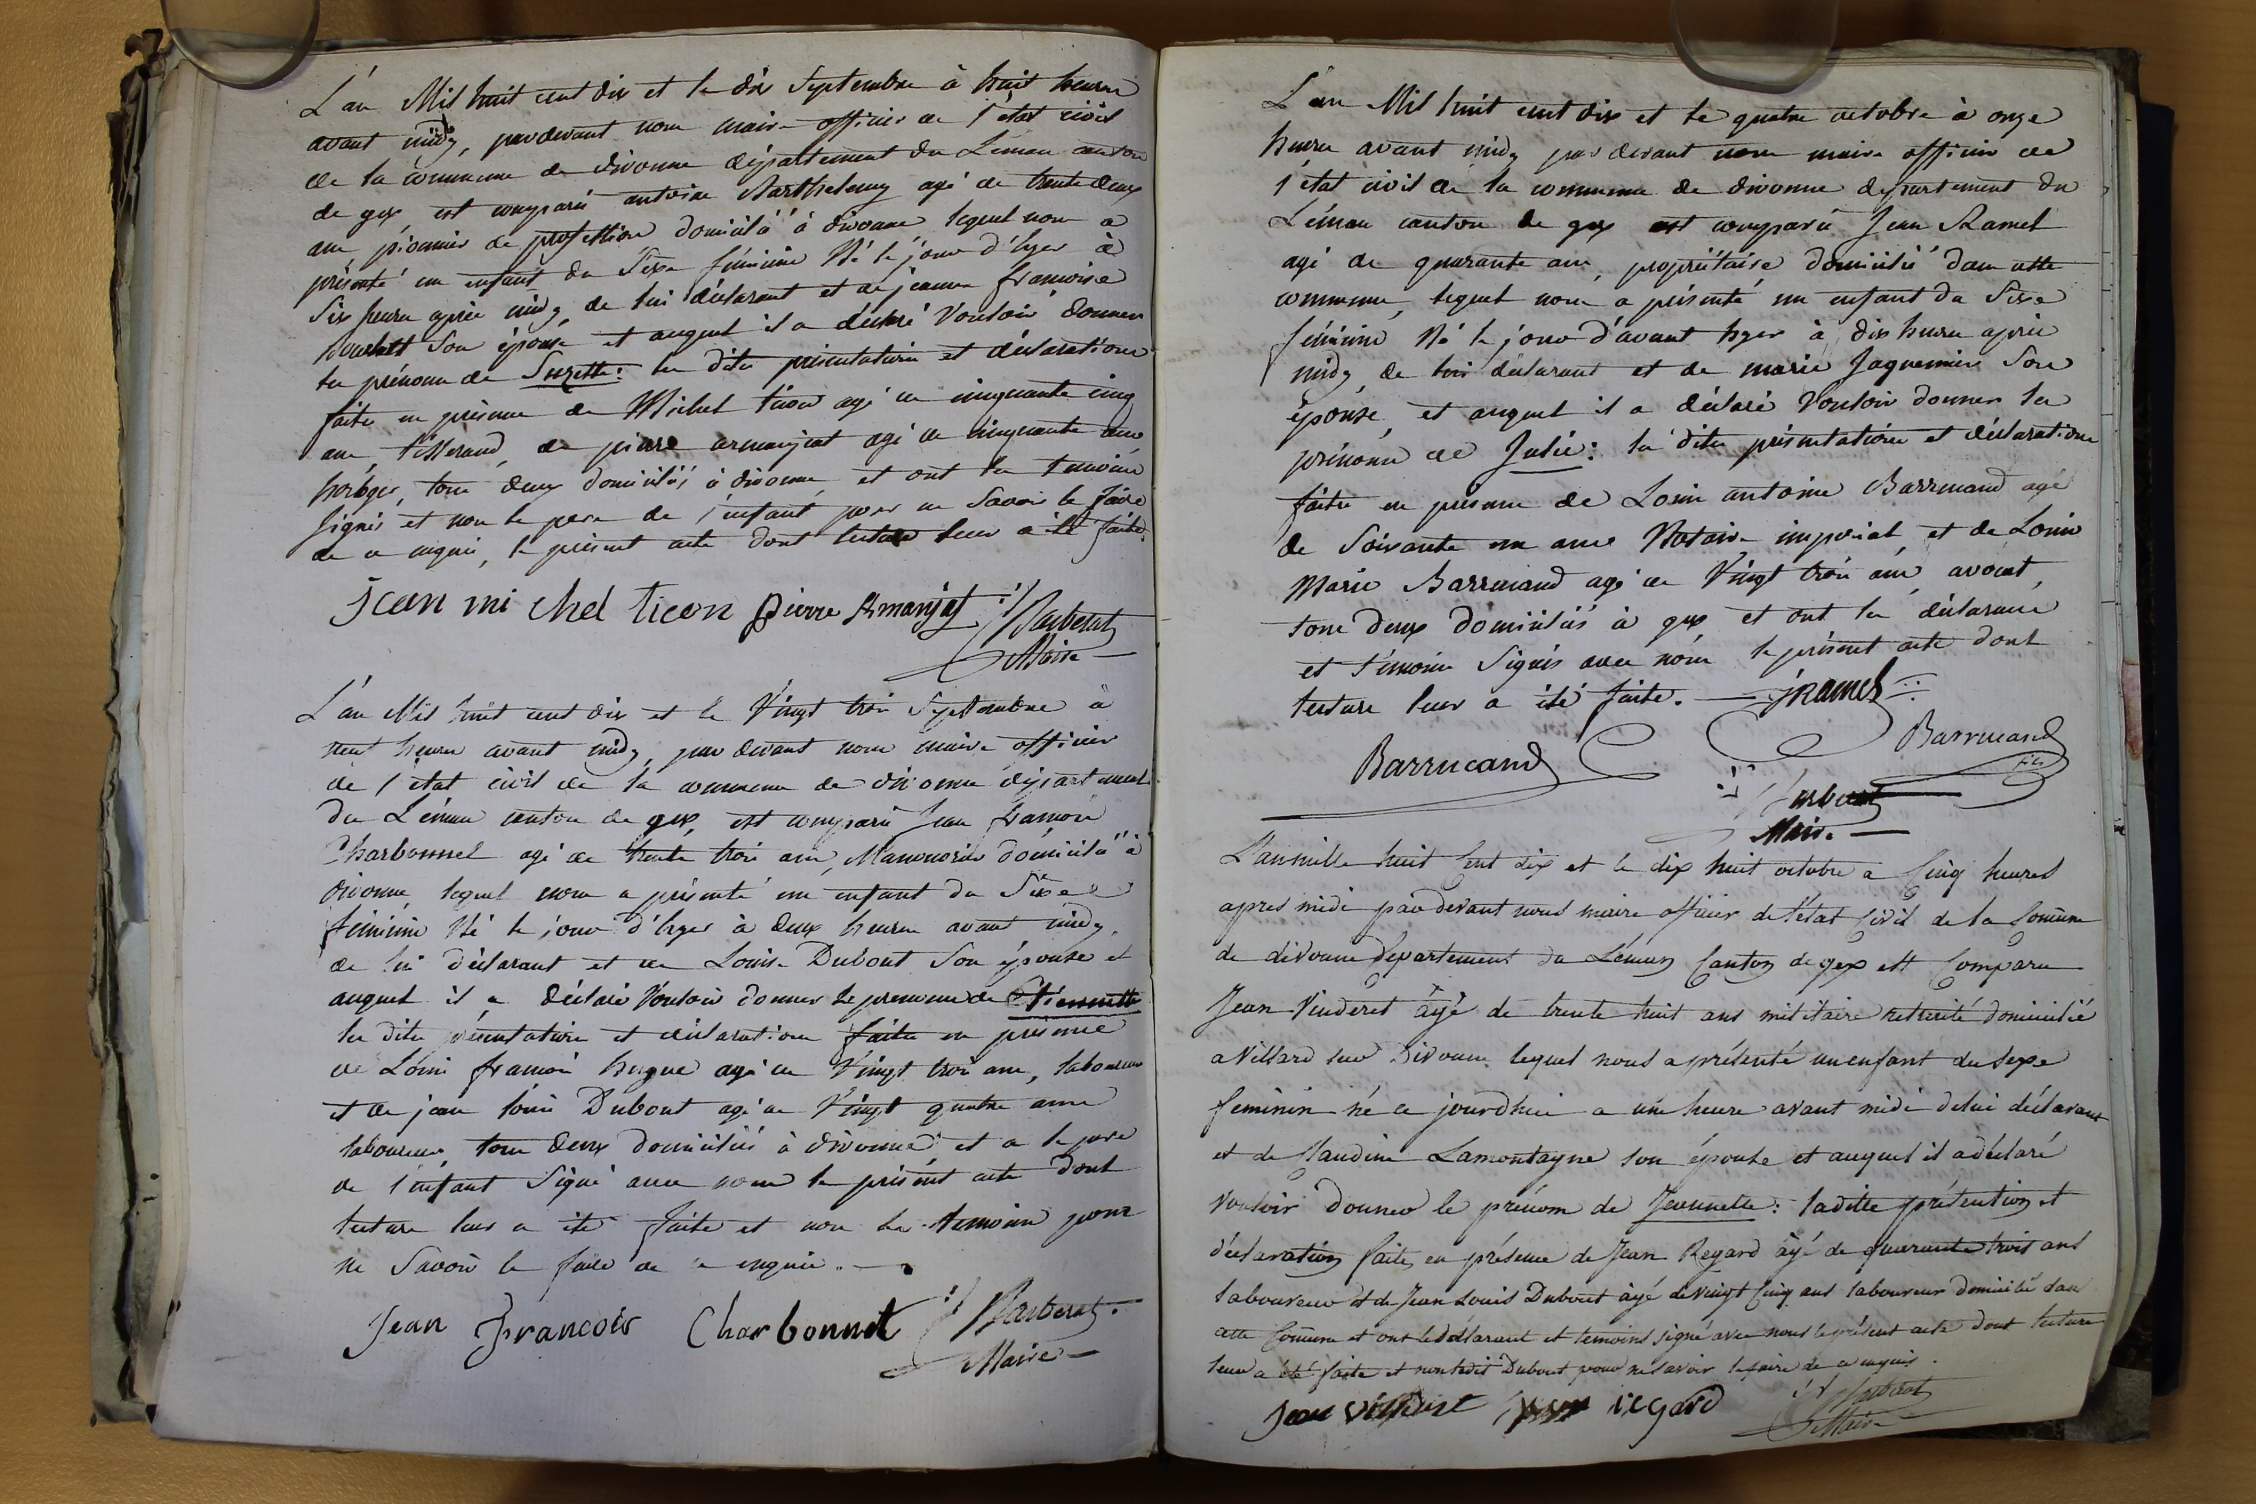 L'an Mil huit cent dix et le dix Septembre à huit heures
avant midy, pardevant nous maire officier de l'état civil
de la commune de divonne département du Léman canton
de gex, est comparu antoine Barthelemy agé de trente deux
ans, pionnier de profession domicilié à divonne lequel nous a
présenté un enfant du Sexe féminin Né le jour d'hyer à
Six heures après midy, de lui déclarant et de jeanne francoise
Son épouse et auquel il a déclaré Vouloir donner
le prénom de Suzette: les dites présentation et déclaration
faites en présence de Michel ticon agé de cinquante cinq
ans tisserand, de pierre armanjat agé de cinquante ans
horloger, tous deux domiciliés à divonne, et ont les temoins
signés et non le pere de l'enfant pour ne Savoir le faire
de ce enquis, le présent acte dont lecture leur a été faite.
Jean mi chel ticon pierre Armanjat Barberat
Maire
L'an Mil huit cent dix et le Vingt trois Septembre à
neuf heures avant midy, par devant nous maire officier
de l'état civil de la commune de divonne département
du Léman canton de gex, est comparu Jean francois
Charbonnet agé de trente trois ans, Manouvrier domicilié à
divonne, lequel nous a présenté un enfant du Sexe
féminin Né le jour d'hyer à deux heures avant midy,
de lui déclarant et de Louise Dubout Son épouse et
auquel il a déclaré Vouloir donner le prenom de Etiennette
les dites présentation et déclaration faites en présence
de Louis francois hugue agé de Vingt trois ans, laboureur
et de jean louis Dubout agé de Vingt quatre ans
laboureur, tous deux domiciliés à divonne, et a le pere
de l'enfant Signé avec nous le présent acte dont
lecture leur a été faite et non les temoins pour
ne Savoir le faire de ce enquis.
Jean Francois Charbonnet Barberat
Maire
L'an Mil huit cent dix et le quatre octobre à onze
heures avant midy par devant nous maire officier de
l'état civil de la commune de divonne département du
Léman canton de gex est comparu Jean Ramel
agé de quarante ans, propriétaire domicilié dans cette
commune, lequel nous a présenté un enfant du Sexe
féminin Né le jour d'avant hyer à dix heures après
midy, de lui déclarant et de marie Jaquemier Son
épouse, et auquel il a déclaré Vouloir donner le
prénom de Julie: les dites présentation et déclaration
faites en présence de Louis antoine Barrucand agé
de Soixante un ans Notaire impérial, et de Louis
Marie Barrucand agé de Vingt trois ans, avocat,
tous deux domiciliés à gex et ont les déclarant
et témoins Signés avec nous le présent acte dont
lecture leur a été faite. JRamel
Barrucand
Barrucand fils
Barberat
Maire
L'an mille huit Cent dix et le dix huit octobre a Cinq heures
apres midi par devant nous maire officier de l'état Civil de la Comune
de divonne Département du Léman Canton de gex est Comparu
Jean Vinderet âgé de trente huit ans militaire retraité domicilié
a Villard sur Divonne lequel nous a présenté un enfant du sexe
feminin né ce jourdhui a une heure avant midi de lui déclarant
et de Claudine Lamontagne son épouse et auquel il a déclaré
vouloir donner le prénom de Jeannette: ladite présention et
déclaration faites en présence de Jean Regard âgé de quarante trois ans
laboureur et de Jean Louis Dubout âgé de vingt Cinq ans laboureur domicilié dans
cette Comune et ont le déclarant et temoins signé avec nous le présent acte dont lecture
leur a été faite et non ledit Dubout pour ne savoir le faire de ce enquis.
Jean regard Barberat
Maire